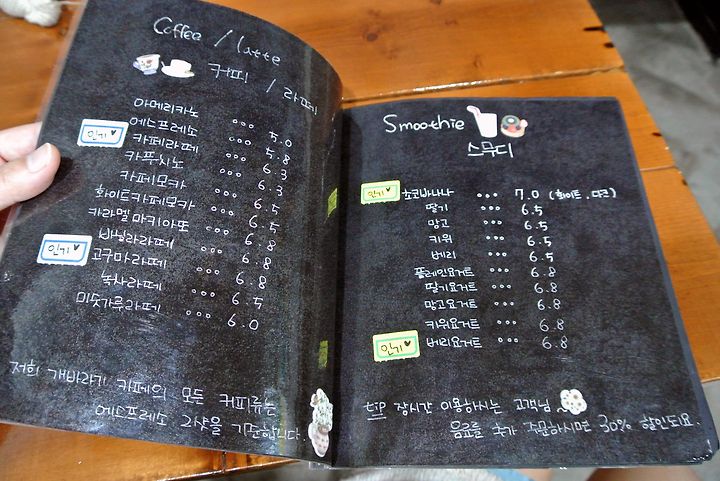 Coffee / latte
커피 / 라떼
아메리카노 ººº 5.0
에스프레소 ººº 5.8
인기♥ 카페라떼 ººº 6.3
카푸치노 ººº 6.3
카페모카 ººº 6.5
화이트카페모카 ººº 6.5
카라멜마키아또 ººº 6.8
바닐라라떼 ººº 6.8
인기♥ 고구마라떼 ººº 6.8
녹차라떼 ººº 6.5
미숫가루라떼 ººº 6.0
저희 개바라기 카페의 모든 커피류는
에스프레소 2샷을 기준합니다.
Smoothie
스무디
인기♥ 쵸코바나나 ººº 7.0 (화이트, 다크)
딸기 ººº 6.5
망고 ººº 6.5
키위 ººº 6.5
베리 ººº 6.5
플레인요거트 ººº 6.8
딸기요거트 ººº 6.8
망고요거트 ººº 6.8
키위요거트 ººº 6.8
인기♥ 베리요거트 ººº 6.8
tip 장시간 이용하시는 고객님
음료를 추가 주문하시면 30% 할인되요